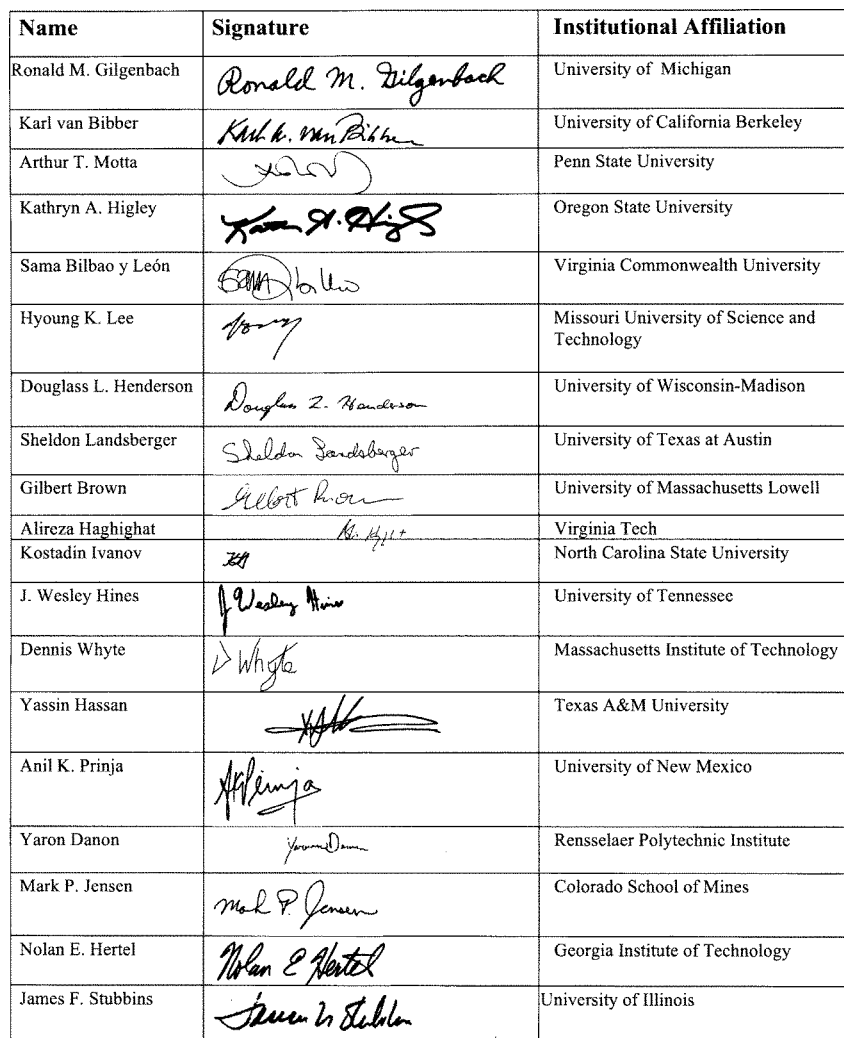 Name Signature Institutional Affiliation
Ronald M. Gilgenbach Ronald M. Gilgenbach University of Michigan
Karl van Bibber Karl K. van Bibber University of California Berkeley
Arthur T. Motta Penn State University
Kathryn A. Higley Oregon State University
Sama Bilbao y León Virginia Commonwealth University
Hyoung K. Lee Missouri University of Science and
Technology
Douglass L. Henderson Douglass L. Henderson University of Wisconsin-Madison
Sheldon Landsberger Sheldon Landsberger University of Texas at Austin
Gilbert Brown Gilbert Brown University of Massachusetts Lowell
Alireza Haghighat Virginia Tech
Kostadin Ivanov North Carolina State University
J. Wesley Hines J Wesley Hines University of Tennessee
Dennis Whyte D Whyte Massachusetts Institute of Technology
Yassin Hassan Texas A&M University
Anil K. Prinja AKPrinja University of New Mexico
Yaron Danon Yaron Danon Rensselaer Polytechnic Institute
Mark P. Jensen Mark P. Jensen Colorado School of Mines
Nolan E. Hertel Nolan E Hertel Georgia Institute of Technology
James F. Stubbins University of Illinois